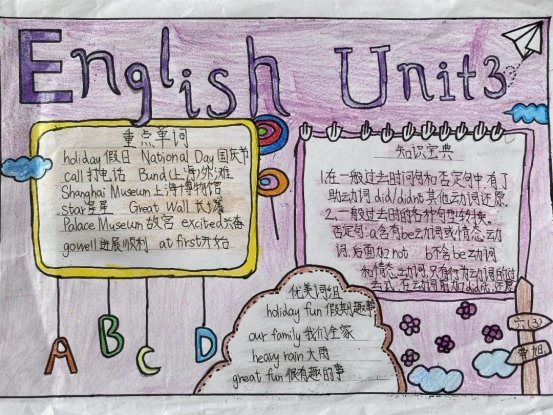 English Unit 3
重点单词
holiday 假日 National Day 国庆节
call 打电话 Bund (上海)外滩
Shanghai Museum 上海博物馆
star 星星 Great Wall 长城
Palace Museum 故宫 excited
go well 进展顺利 at first 开始
知识宝典
1.在一般过去时问句和否定句中,有了
助动词 did/didn't 其他动词还原.
2.一般过去时的各种句型转换.
否定句:a含有be动词或情态动
词.后面加not b不含be动词
和情态动词,只有行为动词的过
去式,在动词前加didn't,还原
优美词组
holiday fun 假期趣事
our family 我们全家
heavy rain 大雨
great fun 很有趣的事
六(3)
A B C D